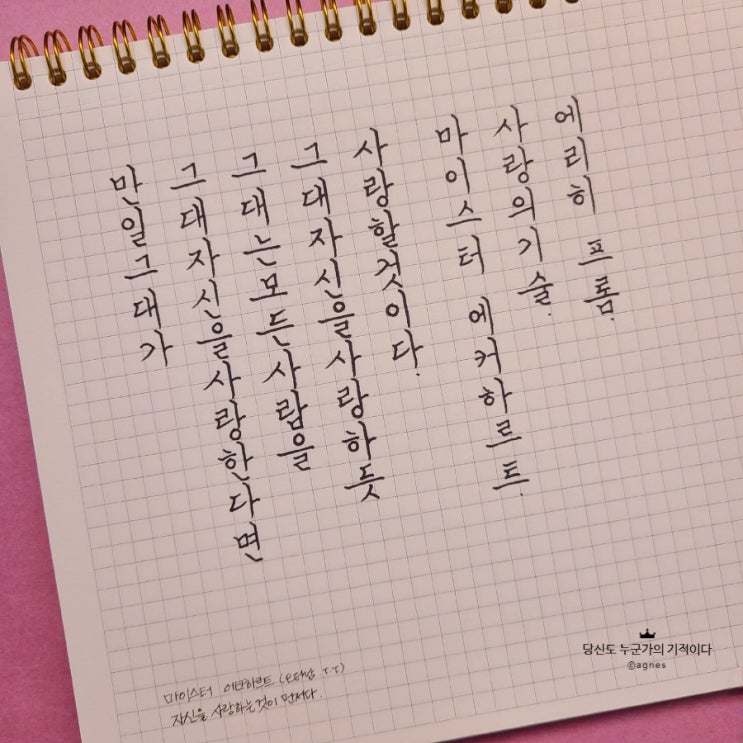 만일 그대가
그대 자신을 사랑한다면
그대는 모든 사람을
그대 자신을 사랑하듯
사랑할 것이다.
마이스터 에커하르트.
사랑의 기술.
에리히 프롬.
마이스터 에크하르트 (오타남 ㅜㅜ)
자신을 사랑하는 것이 먼저다.
당신도 누군가의 기적이다
©agnes